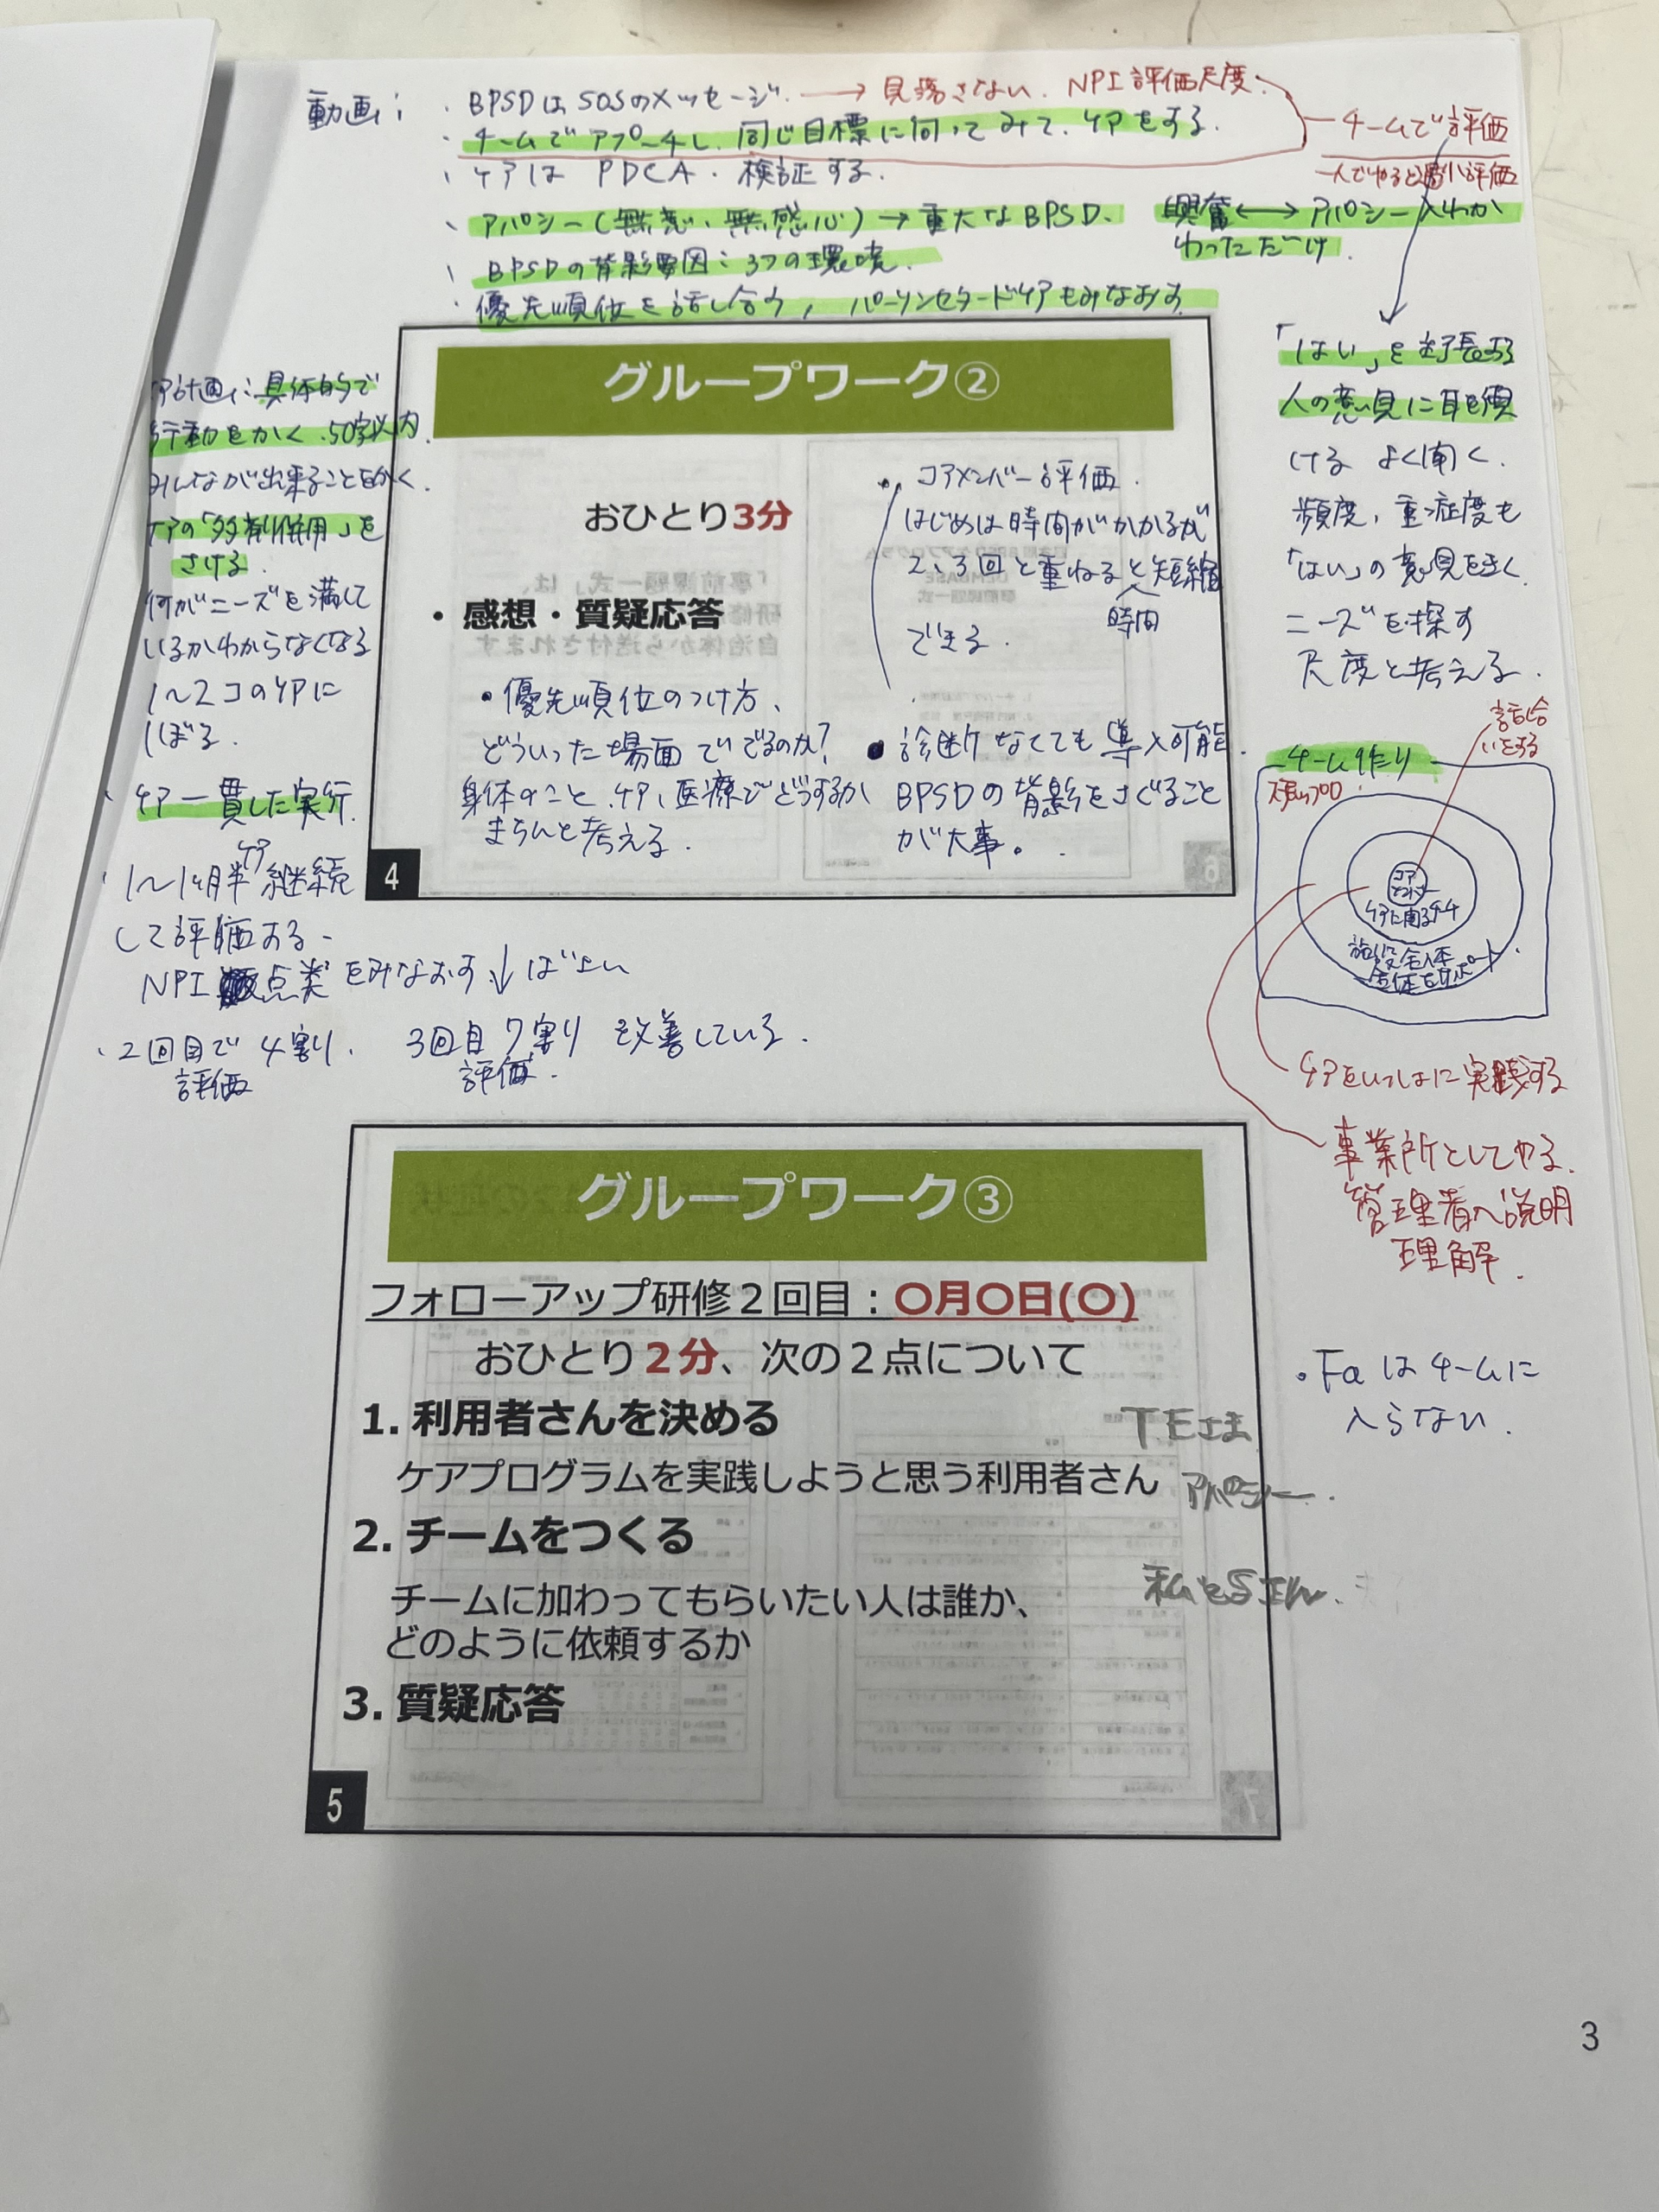 動画:
・BPSDはSOSのメッセージ. → 見落さない. NPI評価尺度.
・チームでアプローチし、同じ目標に向ってみて、ケアをする.
・ケアは PDCA・検証する.
チームで評価
一人でやると過小評価
・アパシー(無意、無感心)→重大なBPSD.
興奮←→アパシー 入れかわっただけ.
・BPSDの背景要因:3つの環境.
・優先順位を話し合う, パーソンセタードケアもみなおす
グループワーク②
おひとり3分
・感想・質疑応答
・優先順位のつけ方、
どういった場面ででるのか?
身体のこと、ケア、医療でどうするか
きちんと考える.
・コアメンバー評価.
はじめは時間がかかるが
2、3回と重ねると短縮
時間
できる.
・診断ケなくても導入可能.
BPSDの背景をさぐること
が大事。
4
ケア計画:具体的で
行動をかく.50字以内.
みんなが出来ることをかく.
ケアの「多剤併用」を
さける.
何がニーズを満して
いるかわからなくなる
1〜2コのケアに
しぼる.
・ケア一貫した実行.
・1〜1ヶ月半ケア継続
して評価する-
NPI 点数をみなおす↓ばよい
・2回目で4割り.
評価
3回目7割り
評価.
改善している.
「はい」を
人の意見に耳を傾
ける よく聞く.
頻度、重症度も
「はい」の意見をきく.
ニーズを探す
尺度と考える.
話し合
いをする
チーム作り
コア
ケアに関るチーム
施設全体
全体をサポート
ケアをいっしょに実践する
事業所としてやる.
管理者へ説明
理解.
グループワーク③
フォローアップ研修2回目:〇月〇日(〇)
おひとり2分、次の2点について
1. 利用者さんを決める
TEさま
ケアプログラムを実践しようと思う利用者さん
アパシー.
2. チームをつくる
チームに加わってもらいたい人は誰か、
私とSさん.
どのように依頼するか
3. 質疑応答
5
・Faはチームに
入らない.
3